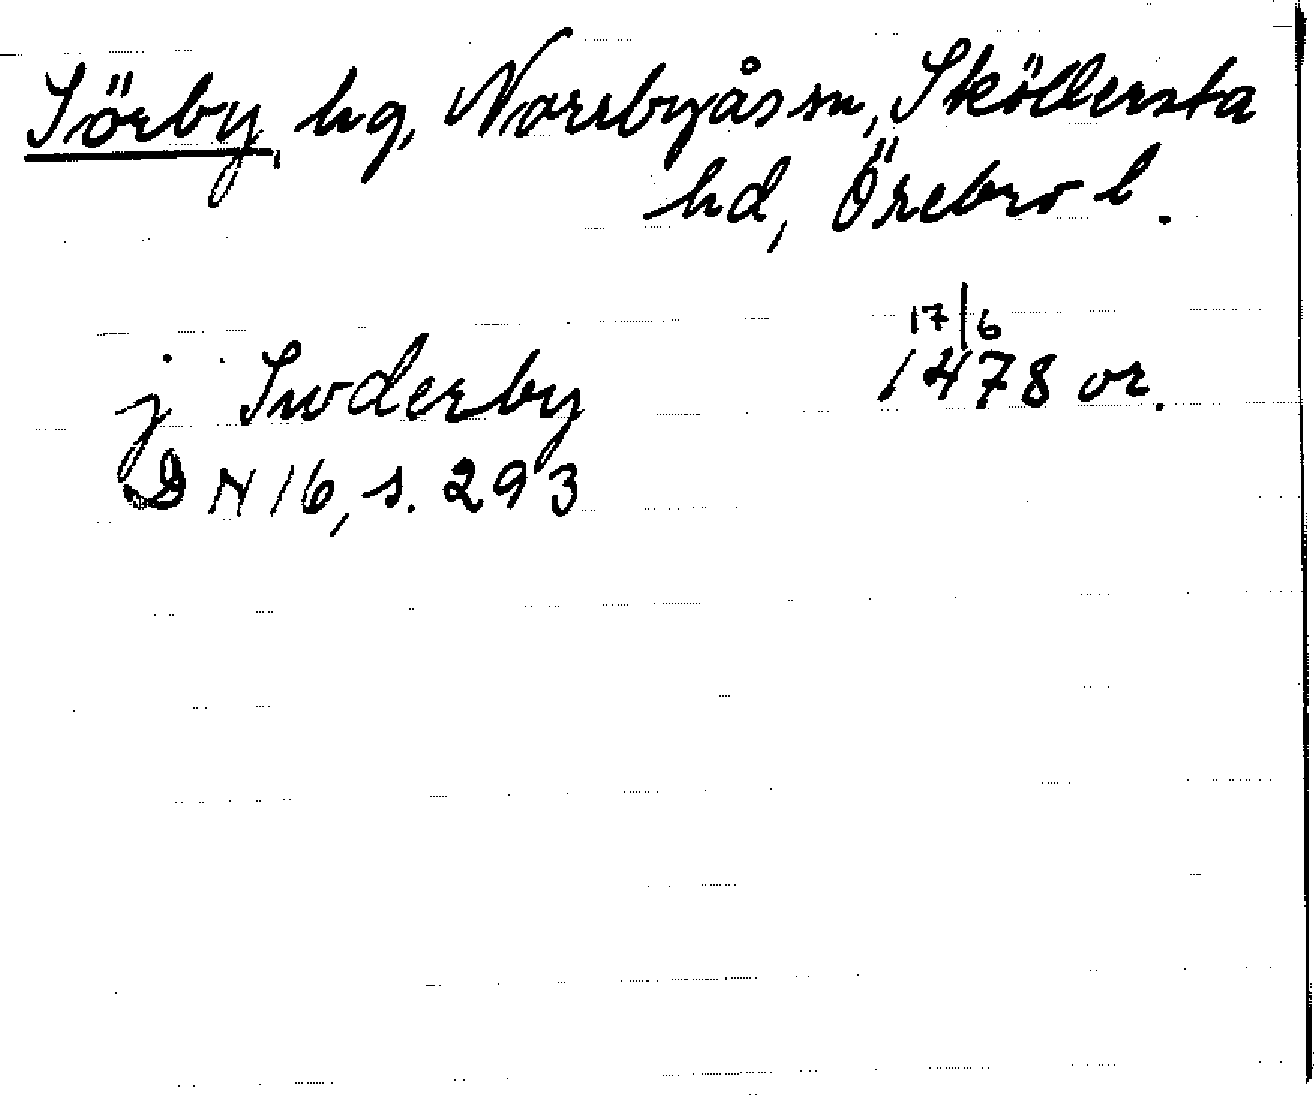 Sörby, hg, Norrbyås sn, Sköllersta
hd, Örebro l.
17/6
j Swderby 1478 or.
DN 16, s. 293